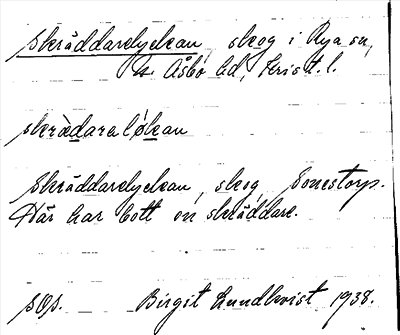 Skräddarelyckan, skog i Rya sn,
N. Åsbo hd, Krist. l.
skrädaralökan
Skräddarelyckan, skog, Sonestorp.
Här har bott en skräddare.
Birgit Lundkvist 1938.